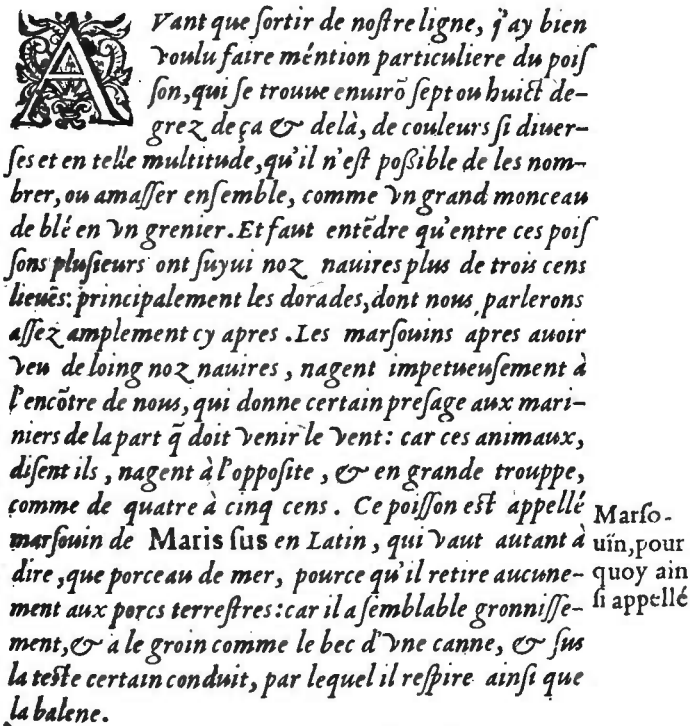 AVant que ſortir de noſtre ligne, j'ay bien
voulu faire méntion particuliere du poiſ
ſon, qui ſe trouue enuirõ ſept ou huict de-
grez deça & delà, de couleurs ſi diuer-
ſes et en telle multitude, qu'il n'eſt poßible de les nom-
brer, ou amaſſer enſemble, comme vn grand monceau
de blé en vn grenier. Et faut entẽdre qu'entre ces poiſ
ſons pluſieurs ont ſuyui noz nauires plus de trois cens
lieuës: principalement les dorades, dont nous parlerons
aſſez amplement cy apres. Les marſouins apres auoir
veu de loing noz nauires, nagent impetueuſement à
l'encõtre de nous, qui donne certain preſage aux mari-
niers de la part q̃ doit venir le vent: car ces animaux,
diſent ils, nagent à l'oppoſite, & en grande trouppe,
comme de quatre à cinq cens. Ce poiſſon eſt appellé
marſouin de Maris ſus en Latin, qui vaut autant à
dire, que porceau de mer, pource qu'il retire aucune-
ment aux porcs terreſtres: car il a ſemblable gronniſſe-
ment, & a le groin comme le bec d'vne canne, & ſus
la teſte certain conduit, par lequel il reſpire ainſi que
la balene.
Marſo-
uïn, pour
quoy ain
ſi appellé